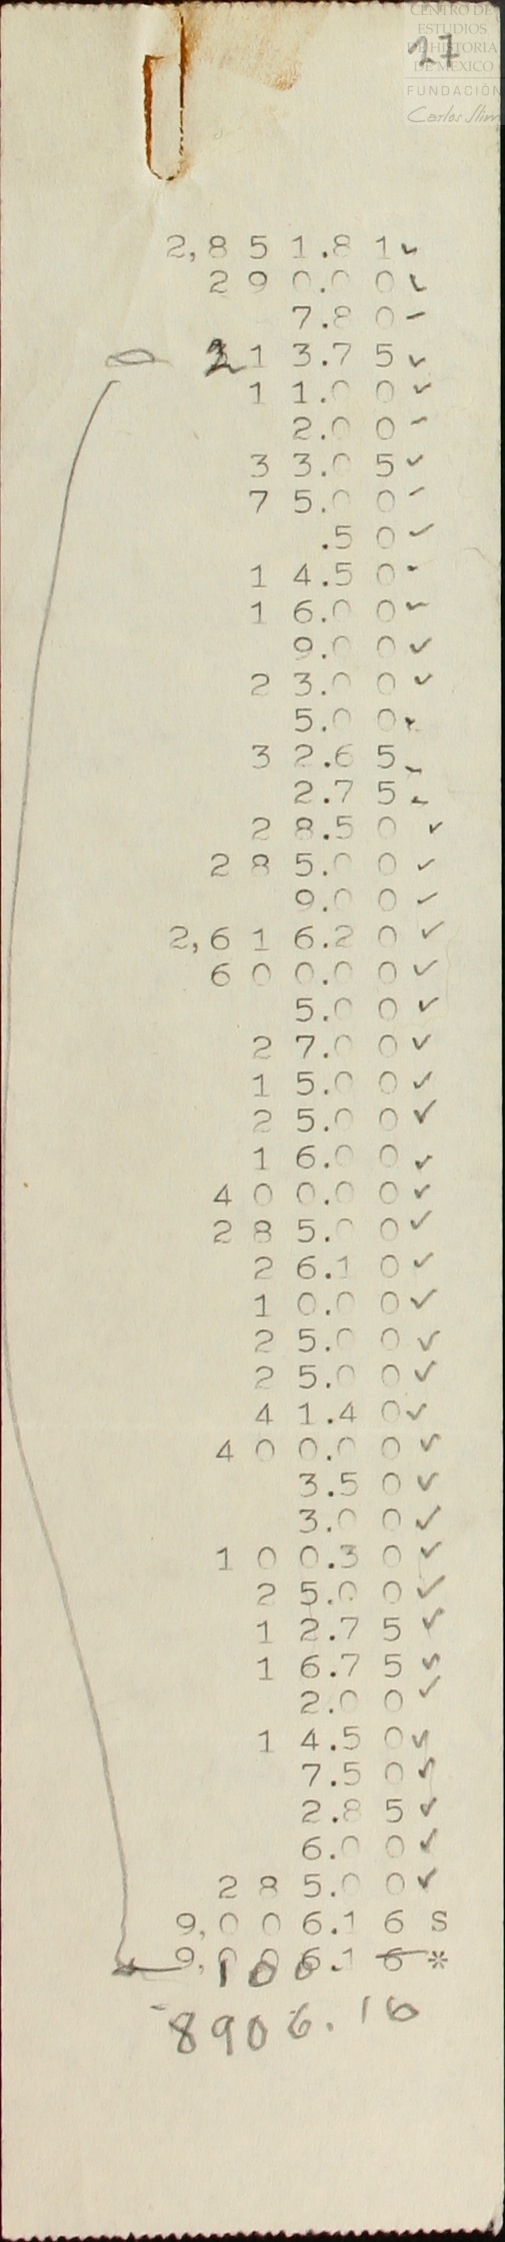 CENTRO DE
ESTUDIOS
DE HISTORIA
DE MEXICO
FUNDACIÓN
Carlos Slim
27
2,851.81 ✓
290.00 ✓
7.80 ✓
213.75 ✓
11.00 ✓
2.00 ✓
33.05 ✓
75.00 ✓
.50 ✓
14.50 ✓
16.00 ✓
9.00 ✓
23.00 ✓
5.00 ✓
32.65 ✓
2.75 ✓
28.50 ✓
285.00 ✓
9.00 ✓
2,616.20 ✓
600.00 ✓
5.00 ✓
27.00 ✓
15.00 ✓
25.00 ✓
16.00 ✓
400.00 ✓
285.00 ✓
26.10 ✓
10.00 ✓
25.00 ✓
25.00 ✓
41.40 ✓
400.00 ✓
3.50 ✓
3.00 ✓
100.30 ✓
25.00 ✓
12.75 ✓
16.75 ✓
2.00 ✓
14.50 ✓
7.50 ✓
2.85 ✓
6.00 ✓
285.00 ✓
9,006.16 S
9,006.16 *
100.-
8906.16